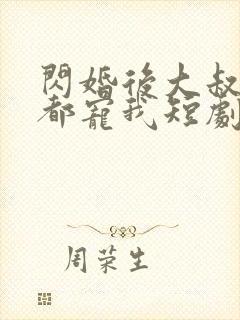 閃婚後大叔
都寵我短劇
周荣生